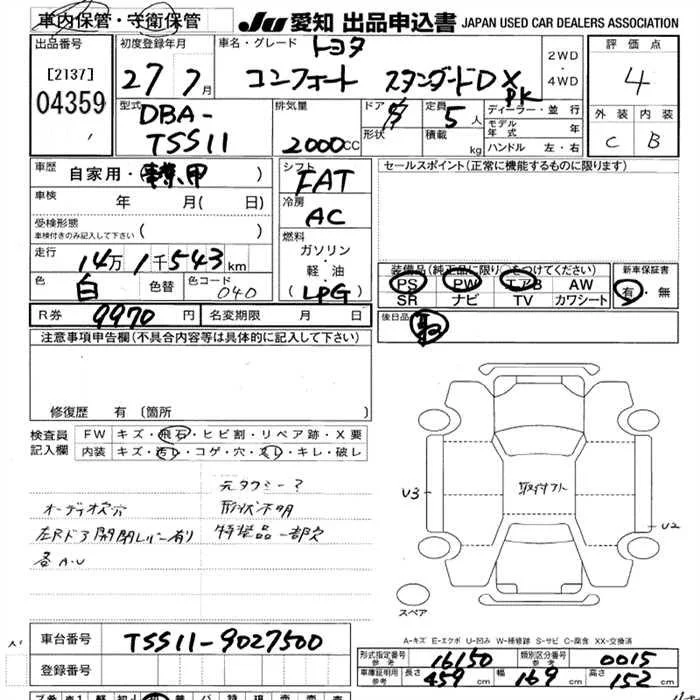 車内保管・守衛保管
JU 愛知 出品申込書 JAPAN USED CAR DEALERS ASSOCIATION
出品番号
[2137]
04359
初度登録年月
27 7月
車名・グレード トヨタ
コンフォート スタンダードDX PK
2WD・4WD
評価点
4
外装 内装
C B
型式
DBA-
TSS11
排気量
2000CC
ドア
形状
定員 5人
積載 kg
ディーラー・並行
モデル年式 年
ハンドル 左・右
車歴 自家用・(事業用)
車検 年 月(日)
受検形態
車検付きのみ記入して下さい ( )
走行 14万1千543km
色 白 色替 色コード 040
シフト
FAT
冷房
AC
燃料
ガソリン・軽・油
(LPG)
セールスポイント(正常に機能するものに限ります)
装備品(純正品に限り○をつけてください)
PS PW エアB AW
SR ナビ TV カワシート
新車保証書
有・無
後日品
R券 9970円 名変期限 月 日
注意事項申告欄(不具合内容等は具体的に記入して下さい)
修復歴 有 〔箇所
検査員記入欄
FW キズ・飛石・ヒビ割・リペア跡・X要
内装 キズ・汚レ・コゲ・穴・スレ・キレ・破レ
元タクシー?
オーディオ欠穴 形状不明
左Rドア開閉レバー有り 特装品一部欠
各A・U
取付フト
U3
U2
スペア
A-キズ E-エクボ U-凹み W-補修跡 S-サビ C-腐食 XX-交換済
車台番号 TSS11-9027500
登録番号
形式指定番号 参考 16150 類別区分番号 参考 0015
車庫証明用 参考 長さ 459cm 幅 169cm 高さ 152cm